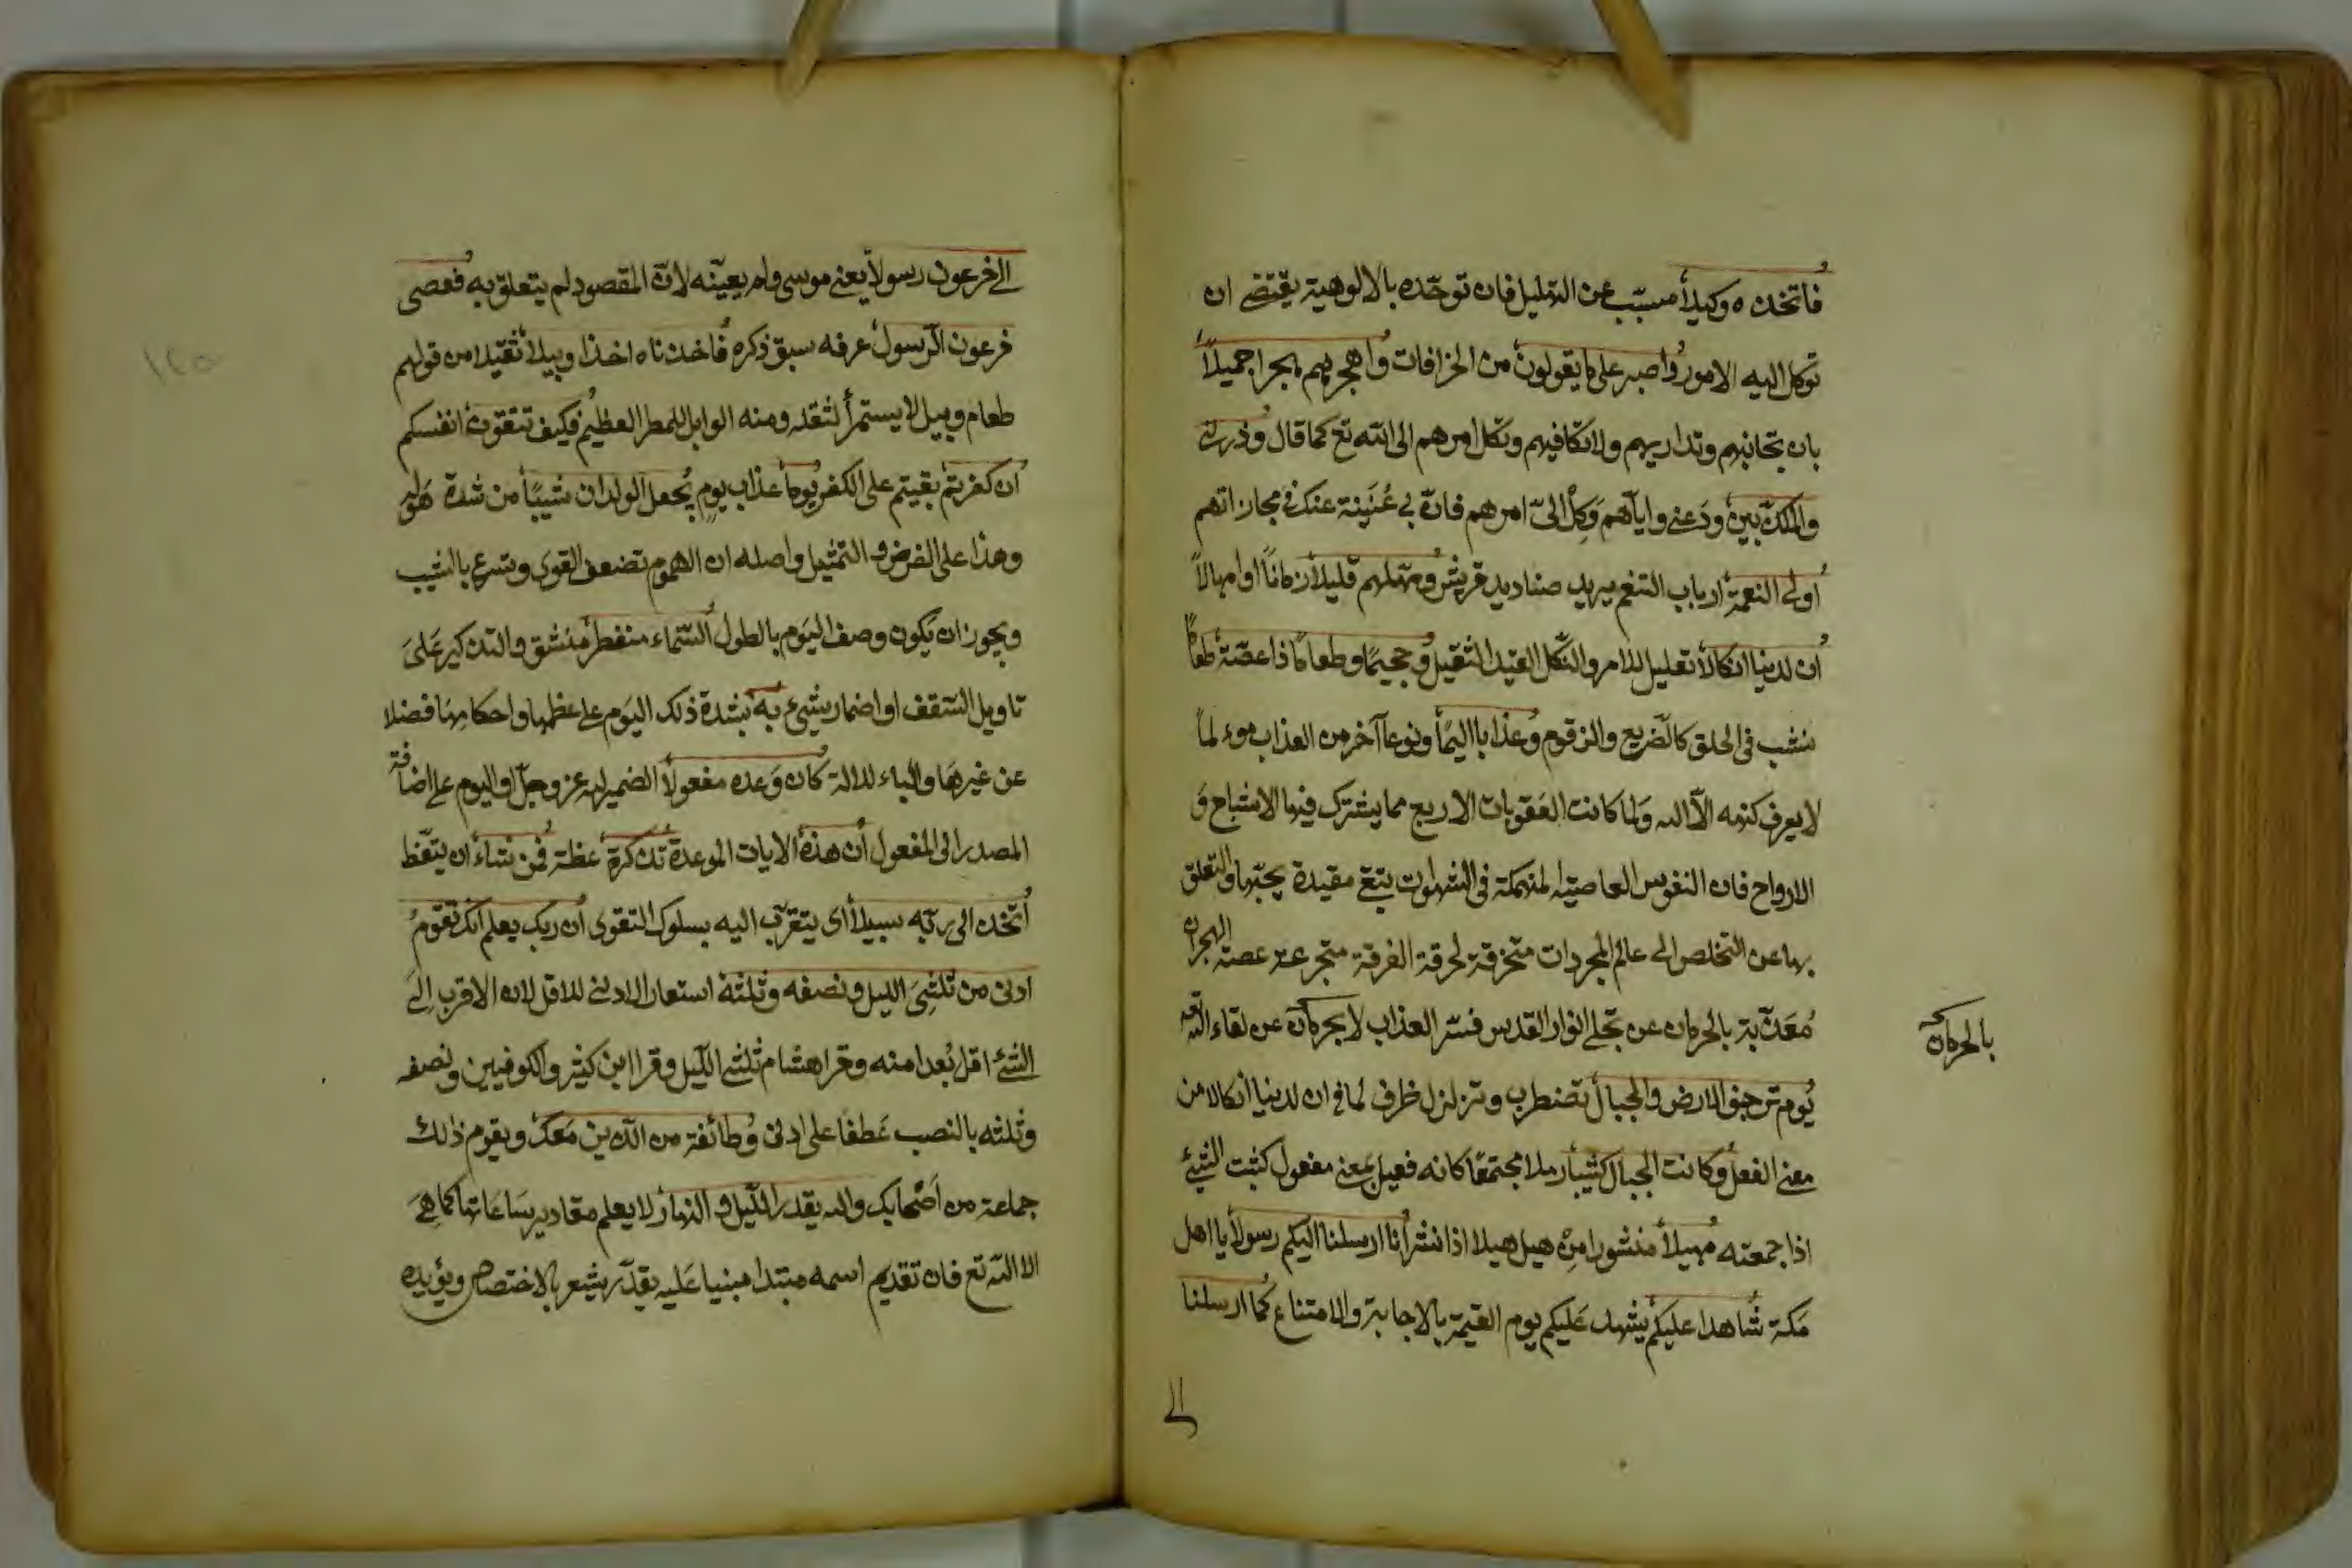 فاتخذه وكيلا مسبب عن التهليل فان توحده بالالوهية يقتضى ان
توكل اليه الامور واصبر على ما يقولون من الخرافات واهجرهم هجرا جميلا
بان تجانبهم وتداريهم ولا تكافيهم وتكل امرهم الى الله تع كما قال وذرنى
والمكذبين ودعنى واياهم وكل الىّ امرهم فان بى غنية عنك فى مجازاتهم
اولى النعمة ارباب التنعم يريد صناديد قريش ومهلهم قليلا زمانا او امهالا
ان لدينا انكالا تعليل للامر والنكل القيد الثقيل وجحيما وطعاما ذا غصة طعاما
ينشب فى الحلق كالضريع والزقوم وعذابا اليما ونوعا آخر من العذاب موءلما
لا يعرف كنهه الا الله ولما كانت العقوبات الاربع مما يشترك فيها الاشباح و
الارواح فان النفوس العاصية المنهمكة فى الشهوات يبقى مقيدة بحبها والتعلق
بها عن التخلص الى عالم المجردات متحرقة بحرقة الفرقة متجرعة غصة الهجران
معذبة بالحرمان عن تجلى انوار القدس فسر العذاب بالحرمان عن لقاء الله تع
بالحرمان
يوم ترجف الارض والجبال تضطرب وتزلزل ظرف لما فى ان لدينا انكالا من
معنى الفعل وكانت الجبال كثيبا رملا مجتمعا كانه فعيل بمعنى مفعول كثبت الشئ
اذا جمعته مهيلا منثورا من هيل هيلا اذا نثر انا ارسلنا اليكم رسولا يا اهل
مكة شاهدا عليكم يشهد عليكم يوم القيمة بالاجابة والامتناع كما ارسلنا
الى
الى فرعون رسولا يعنى موسى ولم يعينه لان المقصود لم يتعلق به فعصى
فرعون الرسول عرفه سبق ذكره فاخذناه اخذا وبيلا ثقيلا من قولهم
طعام وبيل لا يستمرأ لثقله ومنه الوابل للمطر العظيم فكيف تتقون انفسكم
ان كفرتم بقيتم على الكفر يوما عذاب يوم يجعل الولدان شيبا من شدة هوله
وهذا على الفرض و التمثيل واصله ان الهموم تضعف القوى وتسرع بالشيب
ويجوز ان يكون وصف اليوم بالطول السماء منفطر منشق والتذكير على
تاويل السقف او اضمار شىء به بشدة ذلك اليوم على عظمها واحكامها فضلا
عن غيرها والباء للالة كان وعده مفعولا الضمير لله عز وجل او اليوم على اضافة
المصدر الى المفعول ان هذه الايات الموعدة تذكرة عظة فمن شاء ان يتعظ
اتخذ الى ربه سبيلا اى يتقرب اليه بسلوك التقوى ان ربك يعلم انك تقوم
ادنى من ثلثى الليل ونصفه وثلثه استعار الادنى للاقل لان الاقرب الى
الشئ اقل بعدا منه وقرا هشام ثلثى الليل وقرا ابن كثير والكوفيين ونصفه
وثلثه بالنصب عطفا على ادنى وطائفة من الذين معك ويقوم ذلك
جماعة من اصحابك والله يقدر الليل و النهار لا يعلم مقادير ساعاتها كما هى
الا الله تع فان تقديم اسمه مبتدا مبنيا عليه يقدر يشعر بالاختصاص ويؤيده
١٢٥